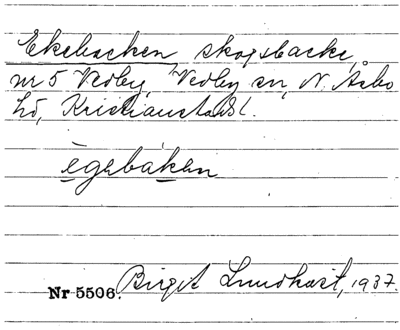 Ekebacken, skogsbacke,
nr 5 Vedby, Vedby sn, N. Åsbo
hd, Kristianstads l.
ègebáken
Nr 5506. Birgit Lundkvist, 1937.